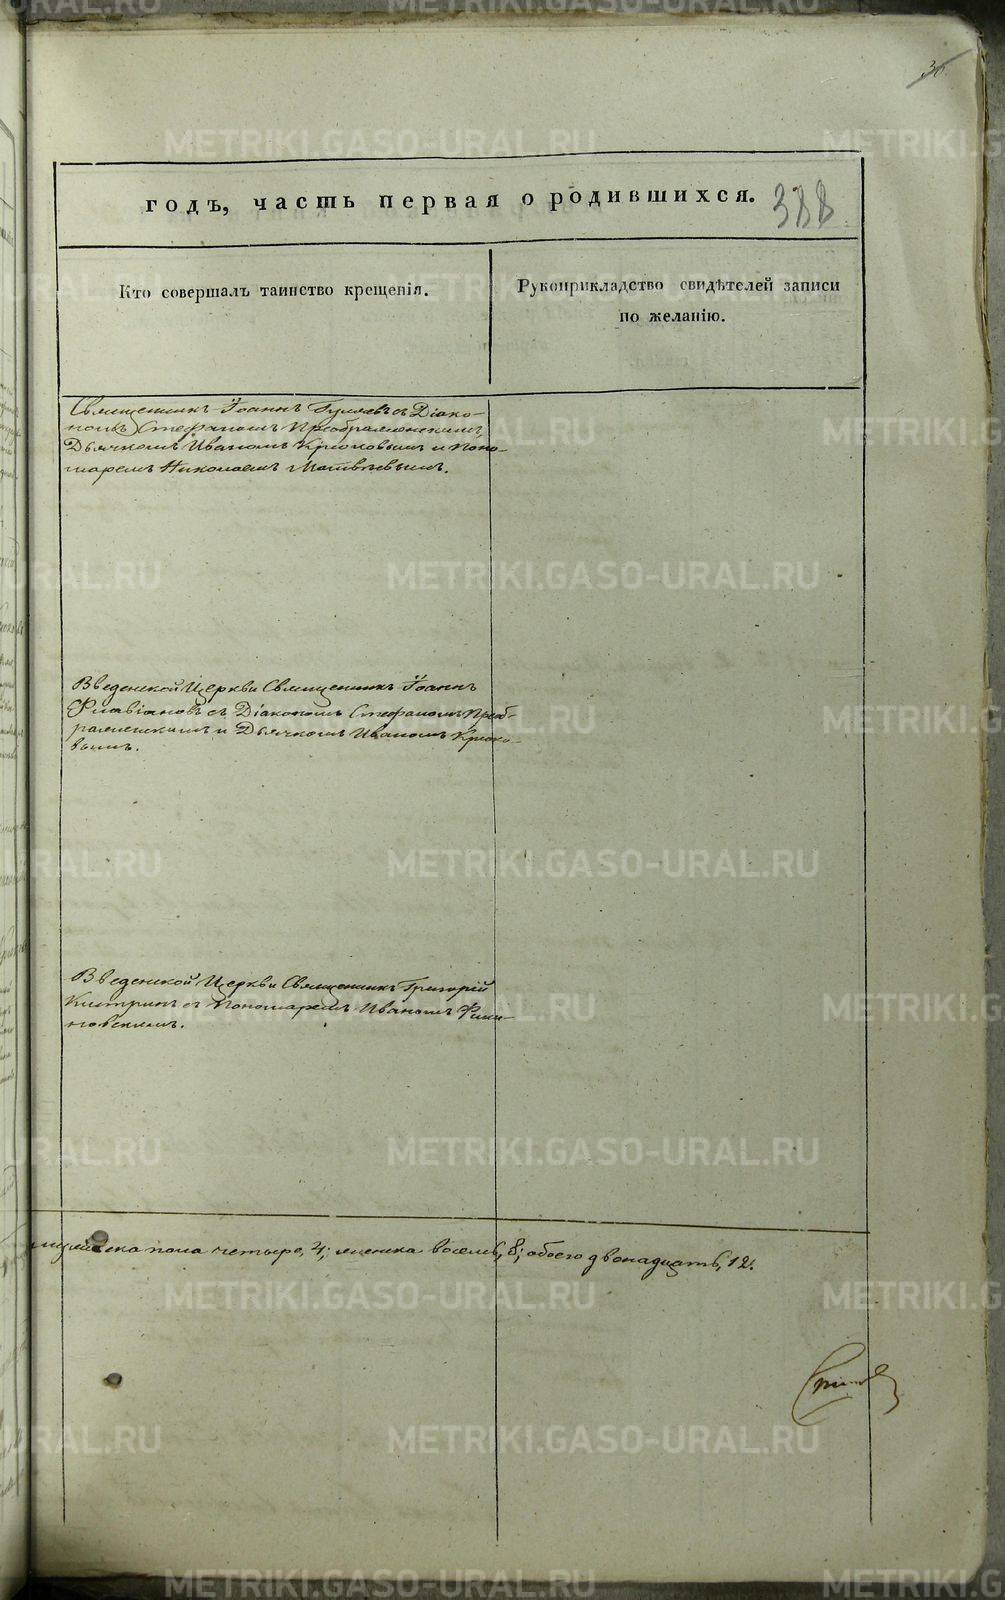 38
годъ, часть первая о родившихся. 388
Кто совершалъ таинство крещенія.
Рукоприкладство свидѣтелей записи
по желанію.
Священникъ Іоаннъ Гуляевъ съ Діако-
номъ Стефаномъ Преображенскимъ,
Дьячкомъ Иваномъ Крюковымъ и Поно-
маремъ Николаемъ Матвѣевымъ.
Введенской Церкви Священникъ Іоаннъ
Флавіановъ съ Діакономъ Стефаномъ Преоб-
раженскимъ и Дьячкомъ Иваномъ Крюко-
вымъ.
Введенской Церкви Священникъ Григорій
съ Пономаремъ Иваномъ
новскимъ.
мужеска пола четыре, 4; женска восемь, 8; обоего двенадцать, 12.
METRIKI.GASO-URAL.RU